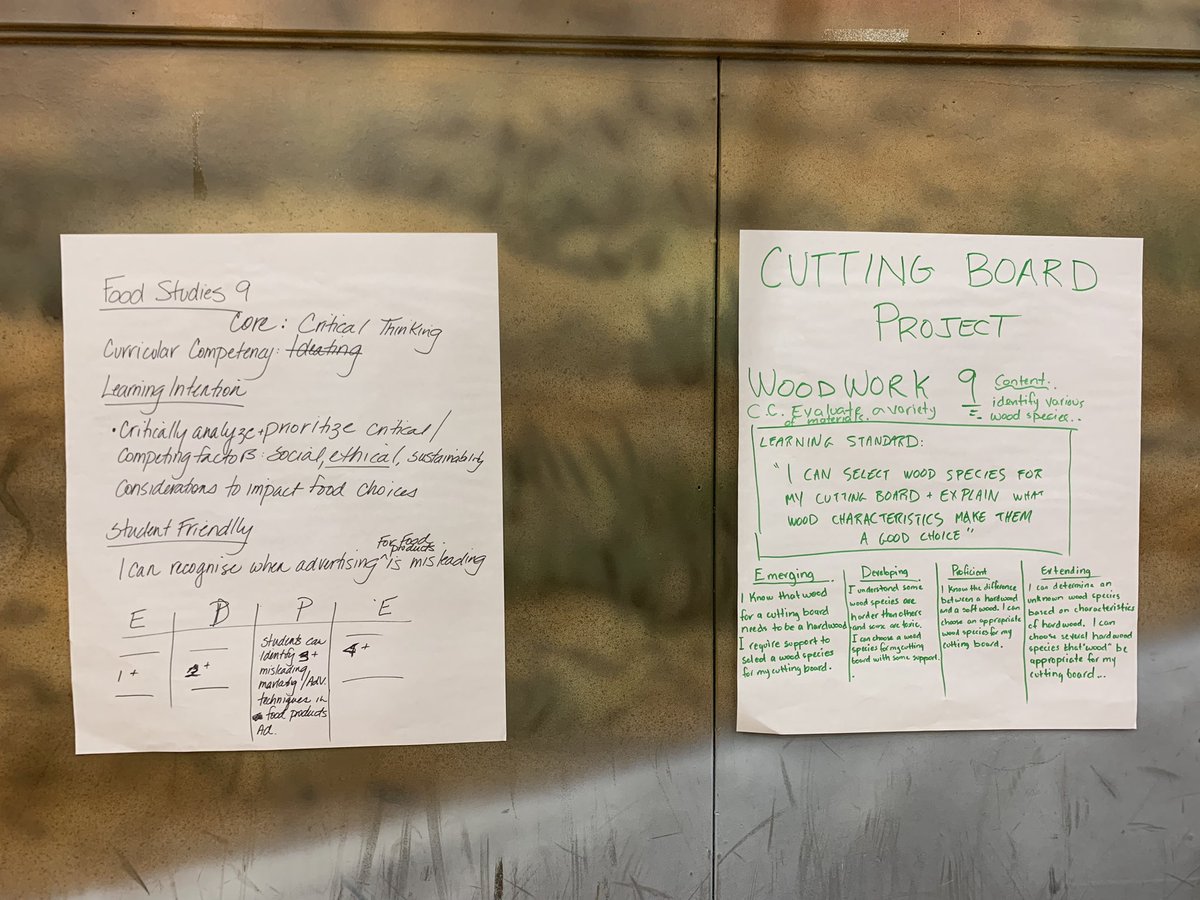 Food Studies 9
Core: Critical Thinking
Curricular Competency: Ideating
Learning Intention
• Critically analyze + prioritize critical /
competing factors: social, ethical, sustainability
considerations to impact food choices
Student Friendly
For food
products
I can recognise when advertising ^ is misleading
E D P E
Students can
identify 3+
misleading
marketing / Adv.
techniques in
food products
Ad.
1+
2+
4+
CUTTING BOARD
PROJECT
WOODWORK 9
C.C. Evaluate a variety
of materials.
Content.
identify various
wood species...
LEARNING STANDARD:
"I CAN SELECT WOOD SPECIES FOR
MY CUTTING BOARD + EXPLAIN WHAT
WOOD CHARACTERISTICS MAKE THEM
A GOOD CHOICE"
Emerging
I know that wood
for a cutting board
needs to be a hardwood
I require support to
select a wood species
for my cutting board.
Developing
I understand some
wood species are
harder than others
and some are toxic.
I can choose a wood
species for my cutting
board with some support.
Proficient
I know the difference
between a hardwood
and a soft wood. I can
choose an appropriate
wood species for my
cutting board.
Extending
I can determine an
unknown wood species
based on characteristics
of hardwood. I can
choose several hardwood
species that "wood" be
appropriate for my
cutting board...